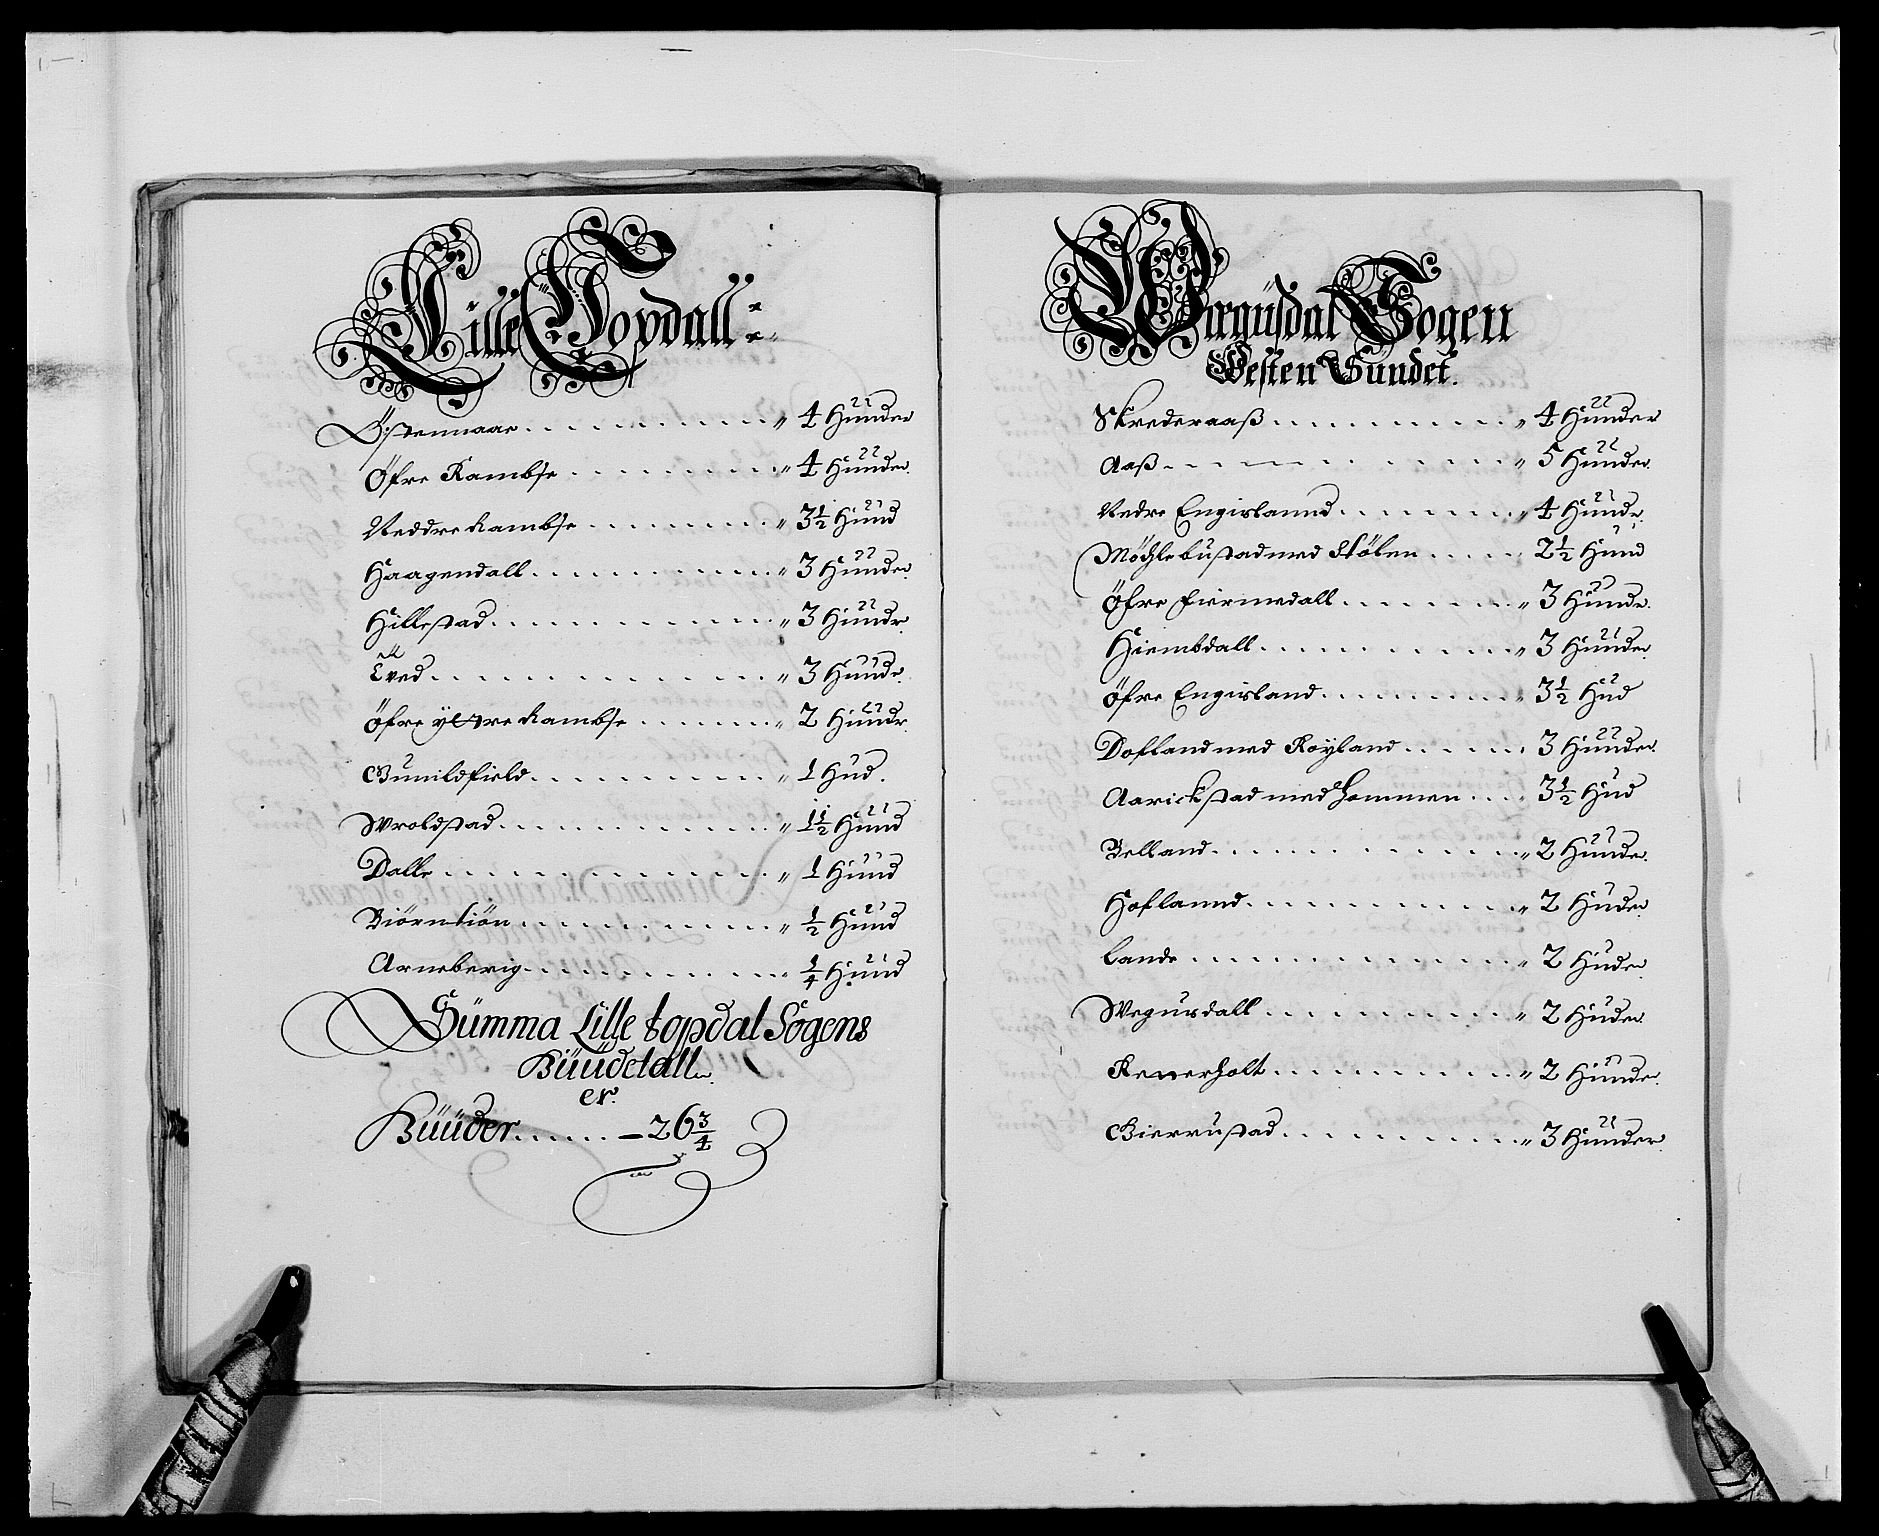 Lille Topdall
Östennaae 4 Hünder
Öfre Rambse 4 Hünder
Neddre Rambse 3½ Hünd
Haagendall 3 Hünder
Hillestad 3 Hündr
Lved 3 Hünde
Öfre ÿttre Rambse 2 Hündr
Gunildfield 1 Hud.
Wroldstad 1½ Hünd
Dalle 1 Hünd
Biörntiön ½ Hünd
Arneberig ¼ Hünd
Sümma Lille topdal Sogens
Hüüdetall
er.
Hüüder 26¾
Wægüsdal Sogen
Westen Sündet.
Skrederaaß 4 Hünder
Aaß 5 Hünder
Nedre Engisland 4 Hünde
Möchlebustad med Stölen 2½ Hünd
Öfre Fiermedall 3 Hünde
Hiembdall 3 Hünder
Öfre Engisland 3½ Hud
Dofland med Röyland 3 Hünder
Aarickstad med Hommen 3½ Hud
Belland 2 Hünder
Hoflannd 2 Huder
Lande 2 Huder
Wegusdall 2 Huder
Renerholt 2 Hünder
Gierrustad 3 Hünder